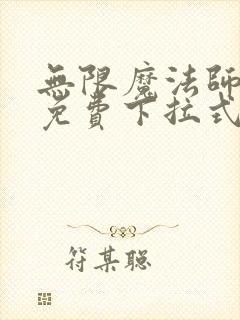 無限魔法師
免費下拉式
符某聪